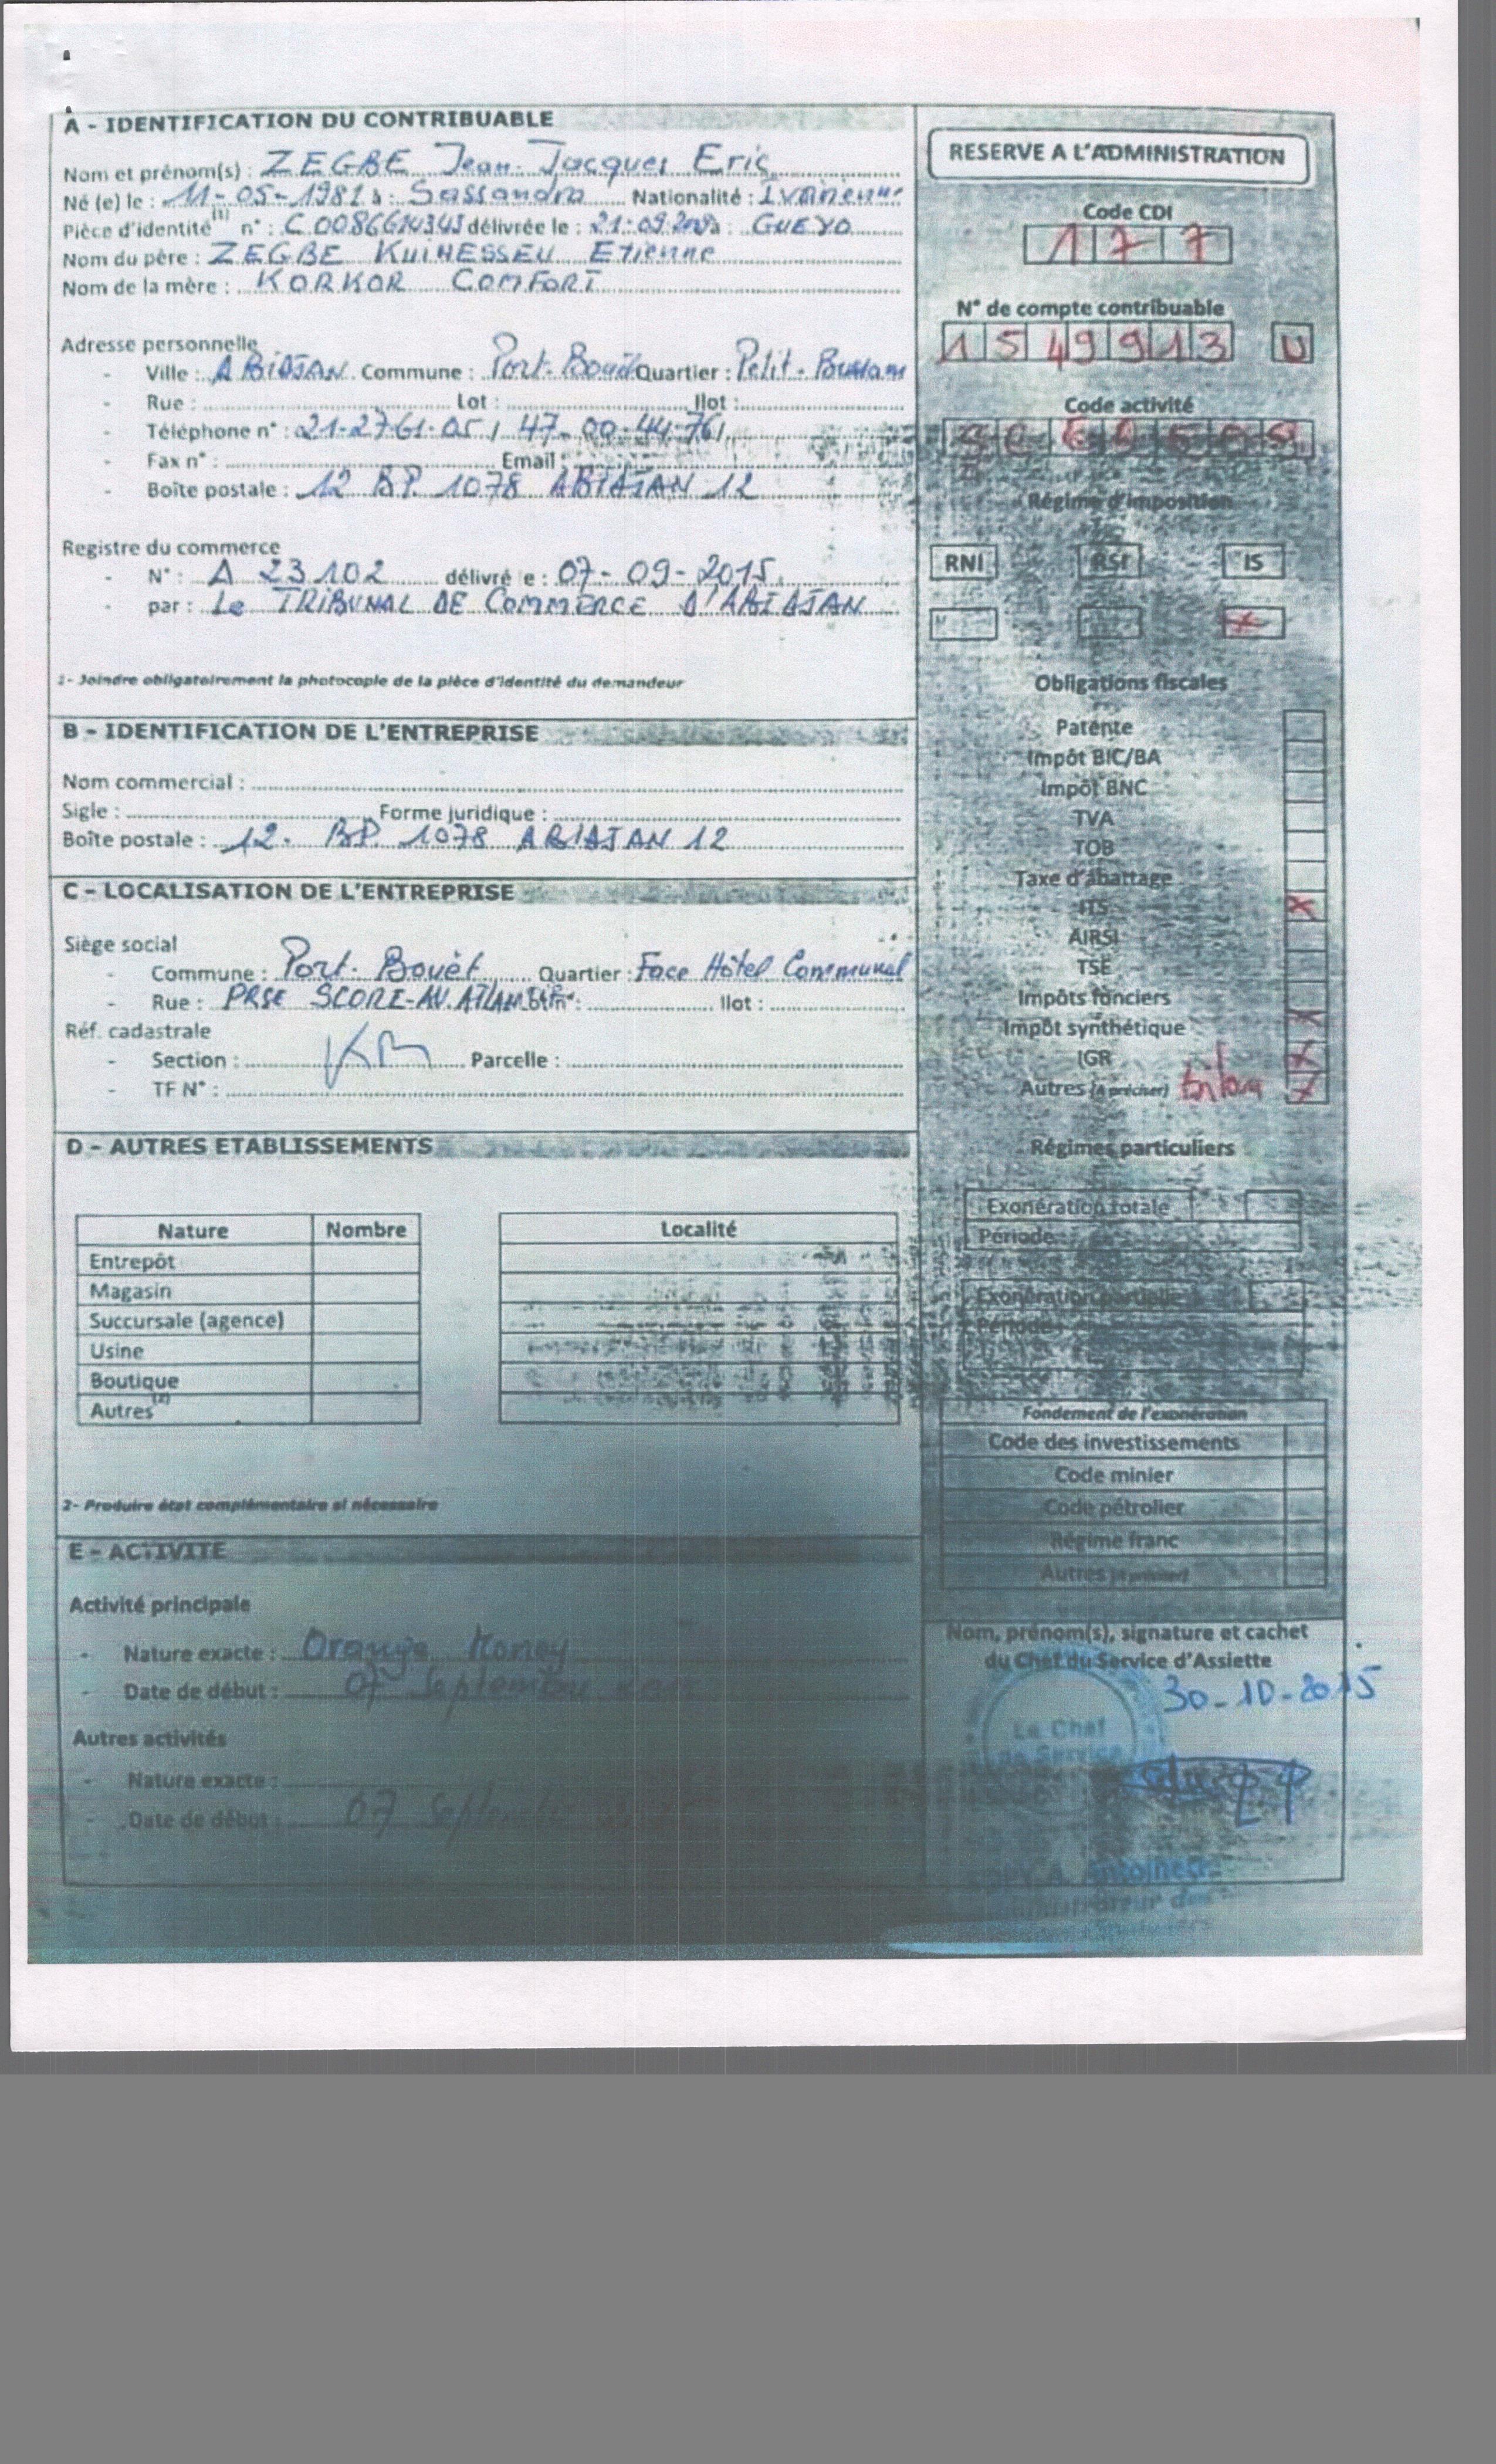 A - IDENTIFICATION DU CONTRIBUABLE
Nom et prénom(s) : ZEGBE Jean-Jacques Eric
Né (e) le : 11-05-1981 à : Sassandra Nationalité : Ivoirienne
Pièce d'identité(1) n° : délivrée le : à : GUEYO
Nom du père : ZEGBE KUIHESSEU Etienne
Nom de la mère : KORKOR COMFORT
Adresse personnelle
- Ville : ABIDJAN Commune : Port-Bouët Quartier : Petit-Bassam
- Rue : Lot : Ilot :
- Téléphone n° : 21-27-61-05 / 47-00-44-76 /
- Fax n° : Email :
- Boîte postale : 12 BP. 1078 ABIDJAN 12
Registre du commerce
- N° : A 23102 délivré le : 07-09-2015
- par : Le TRIBUNAL DE COMMERCE D'ABIDJAN
1- Joindre obligatoirement la photocopie de la pièce d'identité du demandeur
B - IDENTIFICATION DE L'ENTREPRISE
Nom commercial :
Sigle : Forme juridique :
Boîte postale : 12. BP. 1078 ABIDJAN 12
C - LOCALISATION DE L'ENTREPRISE
Siège social
- Commune : Port-Bouët Quartier : Face Hôtel Communal
- Rue : PRSE SCORE-AV. Lot n° : Ilot :
Réf. cadastrale
- Section : Parcelle :
- TF N° :
D - AUTRES ETABLISSEMENTS
Nature Nombre Localité
Entrepôt
Magasin
Succursale (agence)
Usine
Boutique
Autres(2)
2- Produire état complémentaire si nécessaire
E - ACTIVITE
Activité principale
- Nature exacte : Orange Money
- Date de début : 07 Septembre
Autres activités
- Nature exacte :
- Date de début : 07 Septembre
RESERVE A L'ADMINISTRATION
Code CDI
1 7 7
N° de compte contribuable
1 5 4 9 9 1 3 U
Code activité
Régime d'imposition
RNI RSI IS
X
Obligations fiscales
Patente
Impôt BIC/BA
Impôt BNC
TVA
TOB
Taxe d'abattage
ITS X
AIRSI
TSE
Impôts fonciers
Impôt synthétique X
IGR X
Autres (à préciser) X
Régimes particuliers
Exonération totale
Période
Exonération partielle
Période
Fondement de l'exonération
Code des investissements
Code minier
Code pétrolier
Régime franc
Autres (à préciser)
Nom, prénom(s), signature et cachet
du Chef du Service d'Assiette
30-10-2015
Le Chef
de Service
A. Antoine